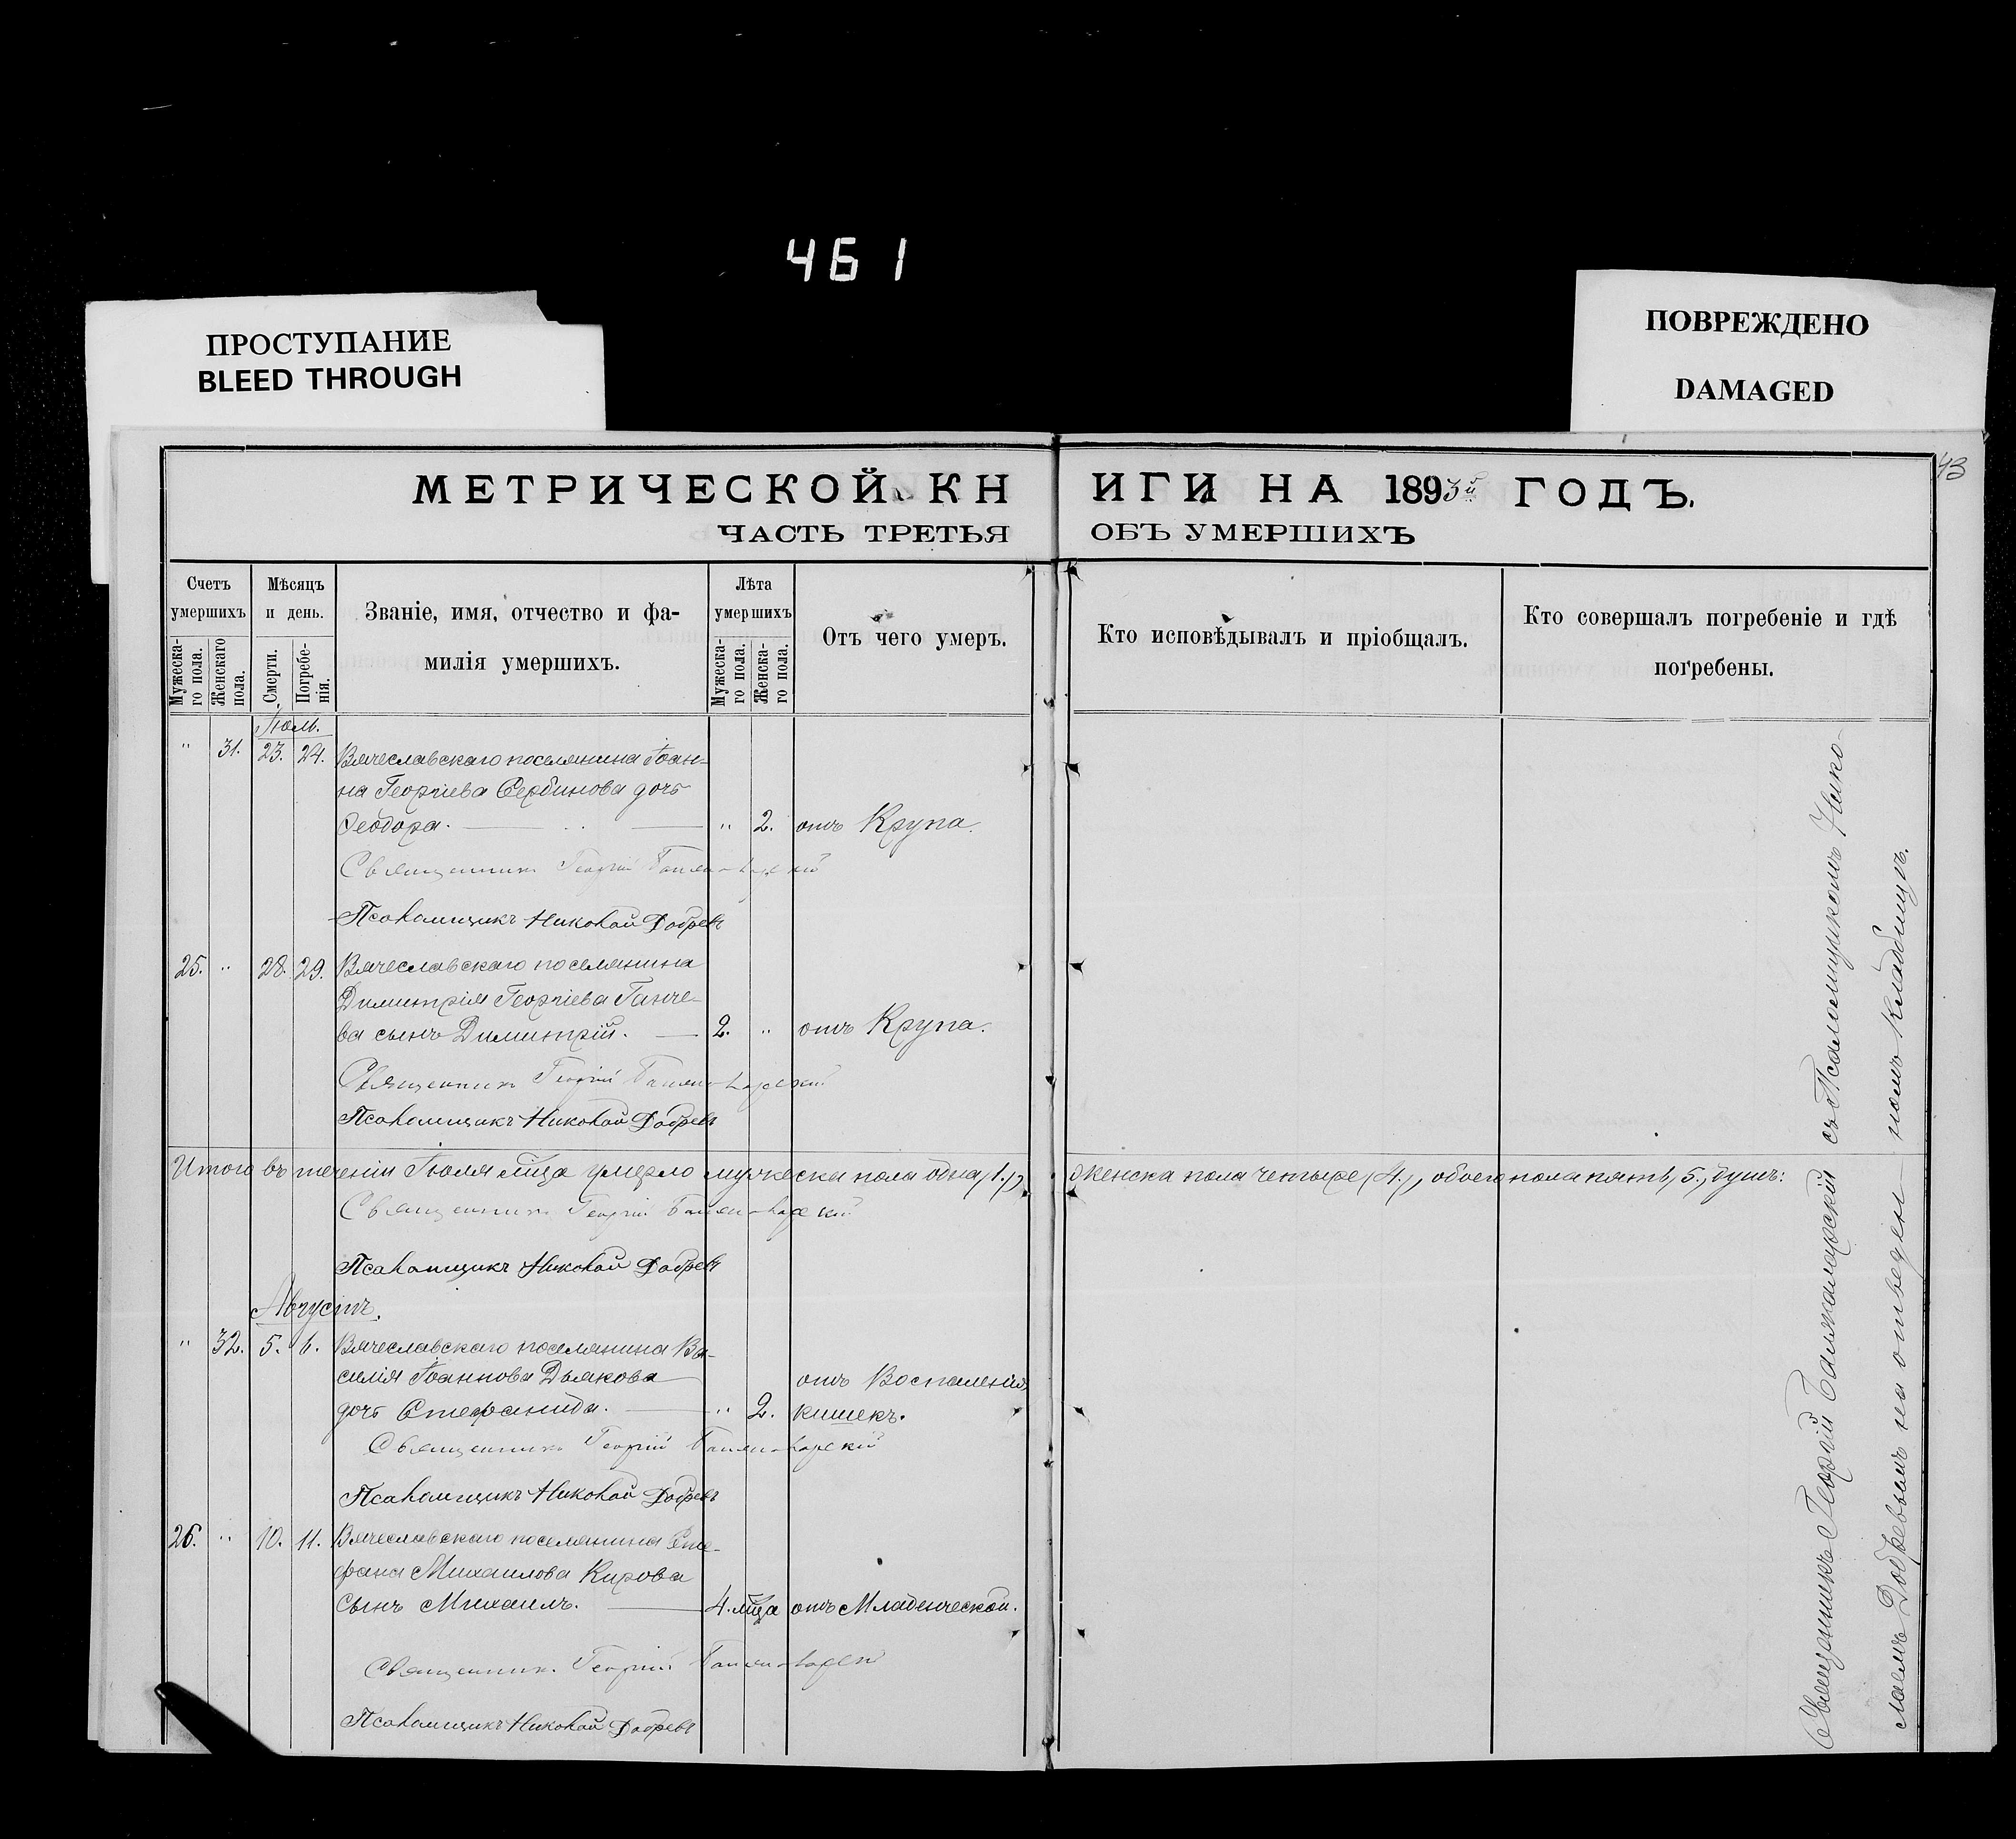 461
ПРОСТУПАНИЕ
BLEED THROUGH
ПОВРЕЖДЕНО
DAMAGED
43
МЕТРИЧЕСКОЙ КНИГИ НА 1893й ГОДЪ.
ЧАСТЬ ТРЕТЬЯ ОБЪ УМЕРШИХЪ
Счетъ умершихъ
Мужеска-го пола.
Женскаго пола.
Мѣсяцъ и день.
Смерти.
Погребе-нія.
Званіе, имя, отчество и фа-
милія умершихъ.
Лѣта умершихъ
Мужеска-го пола.
Женска-го пола.
Отъ чего умеръ.
Кто исповѣдывалъ и пріобщалъ.
Кто совершалъ погребеніе и гдѣ
погребены.
Іюль.
" 31. 23. 24. Вячеславскаго поселянина Іоан-
на Георгіева Сербинова дочь
Ѳеодора. " 2. отъ Крупа.
Священникъ Георгій
Псаломщикъ Николай Добревъ
25. " 28. 29. Вячеславскаго поселянина
Димитрія Георгіева Ганче-
ва сынъ Димитрій. 2. " отъ Крупа.
Священникъ Георгій
Псаломщикъ Николай Добревъ
Итого въ теченіи Іюля мѣца умерло мужеска пола одна (1.), женска пола четыре (4.), обоего пола пять (5.) душъ:
Священникъ Георгій
Псаломщикъ Николай Добревъ
Августъ.
" 32. 5. 6. Вячеславскаго поселянина Ва-
силія Іоаннова Дьякова отъ Воспаленія
дочь Стефанида. " 2. кишекъ.
Священникъ Георгій
Псаломщикъ Николай Добревъ
26. " 10. 11. Вячеславскаго поселянина Сте-
фана Михаилова Кирова
сынъ Михаилъ. 4. мѣца отъ Младенческой.
Священникъ Георгій
Псаломщикъ Николай Добревъ
Священникъ Георгій съ Псаломщикомъ Нико-
лаемъ Добревымъ на отведен-номъ кладбищѣ.